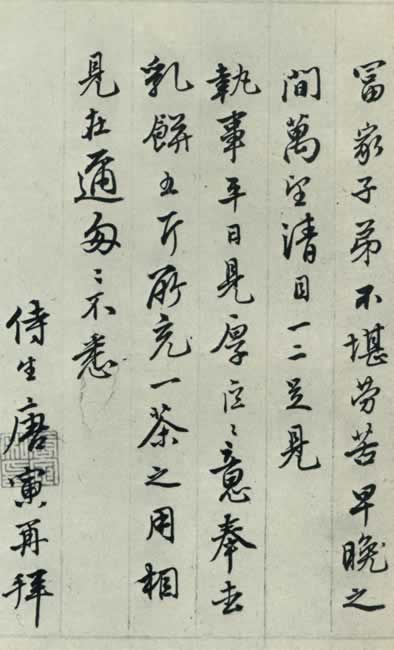 冨家子弟不堪勞苦早晚之
間萬望清目一二足見
執事平日見厚區〻意奉去
乳餅五斤所充一茶之用相
見在邇匆〻不悉
侍生唐寅再拜